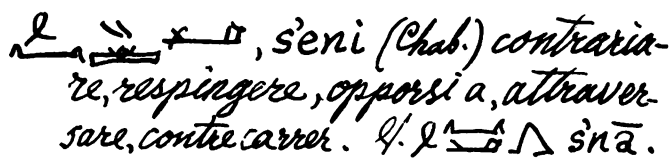 , s'eni (Chab.) contraria-
re, respingere, opporsi a, attraver-
sare, contrecarrer. V. s'nā.